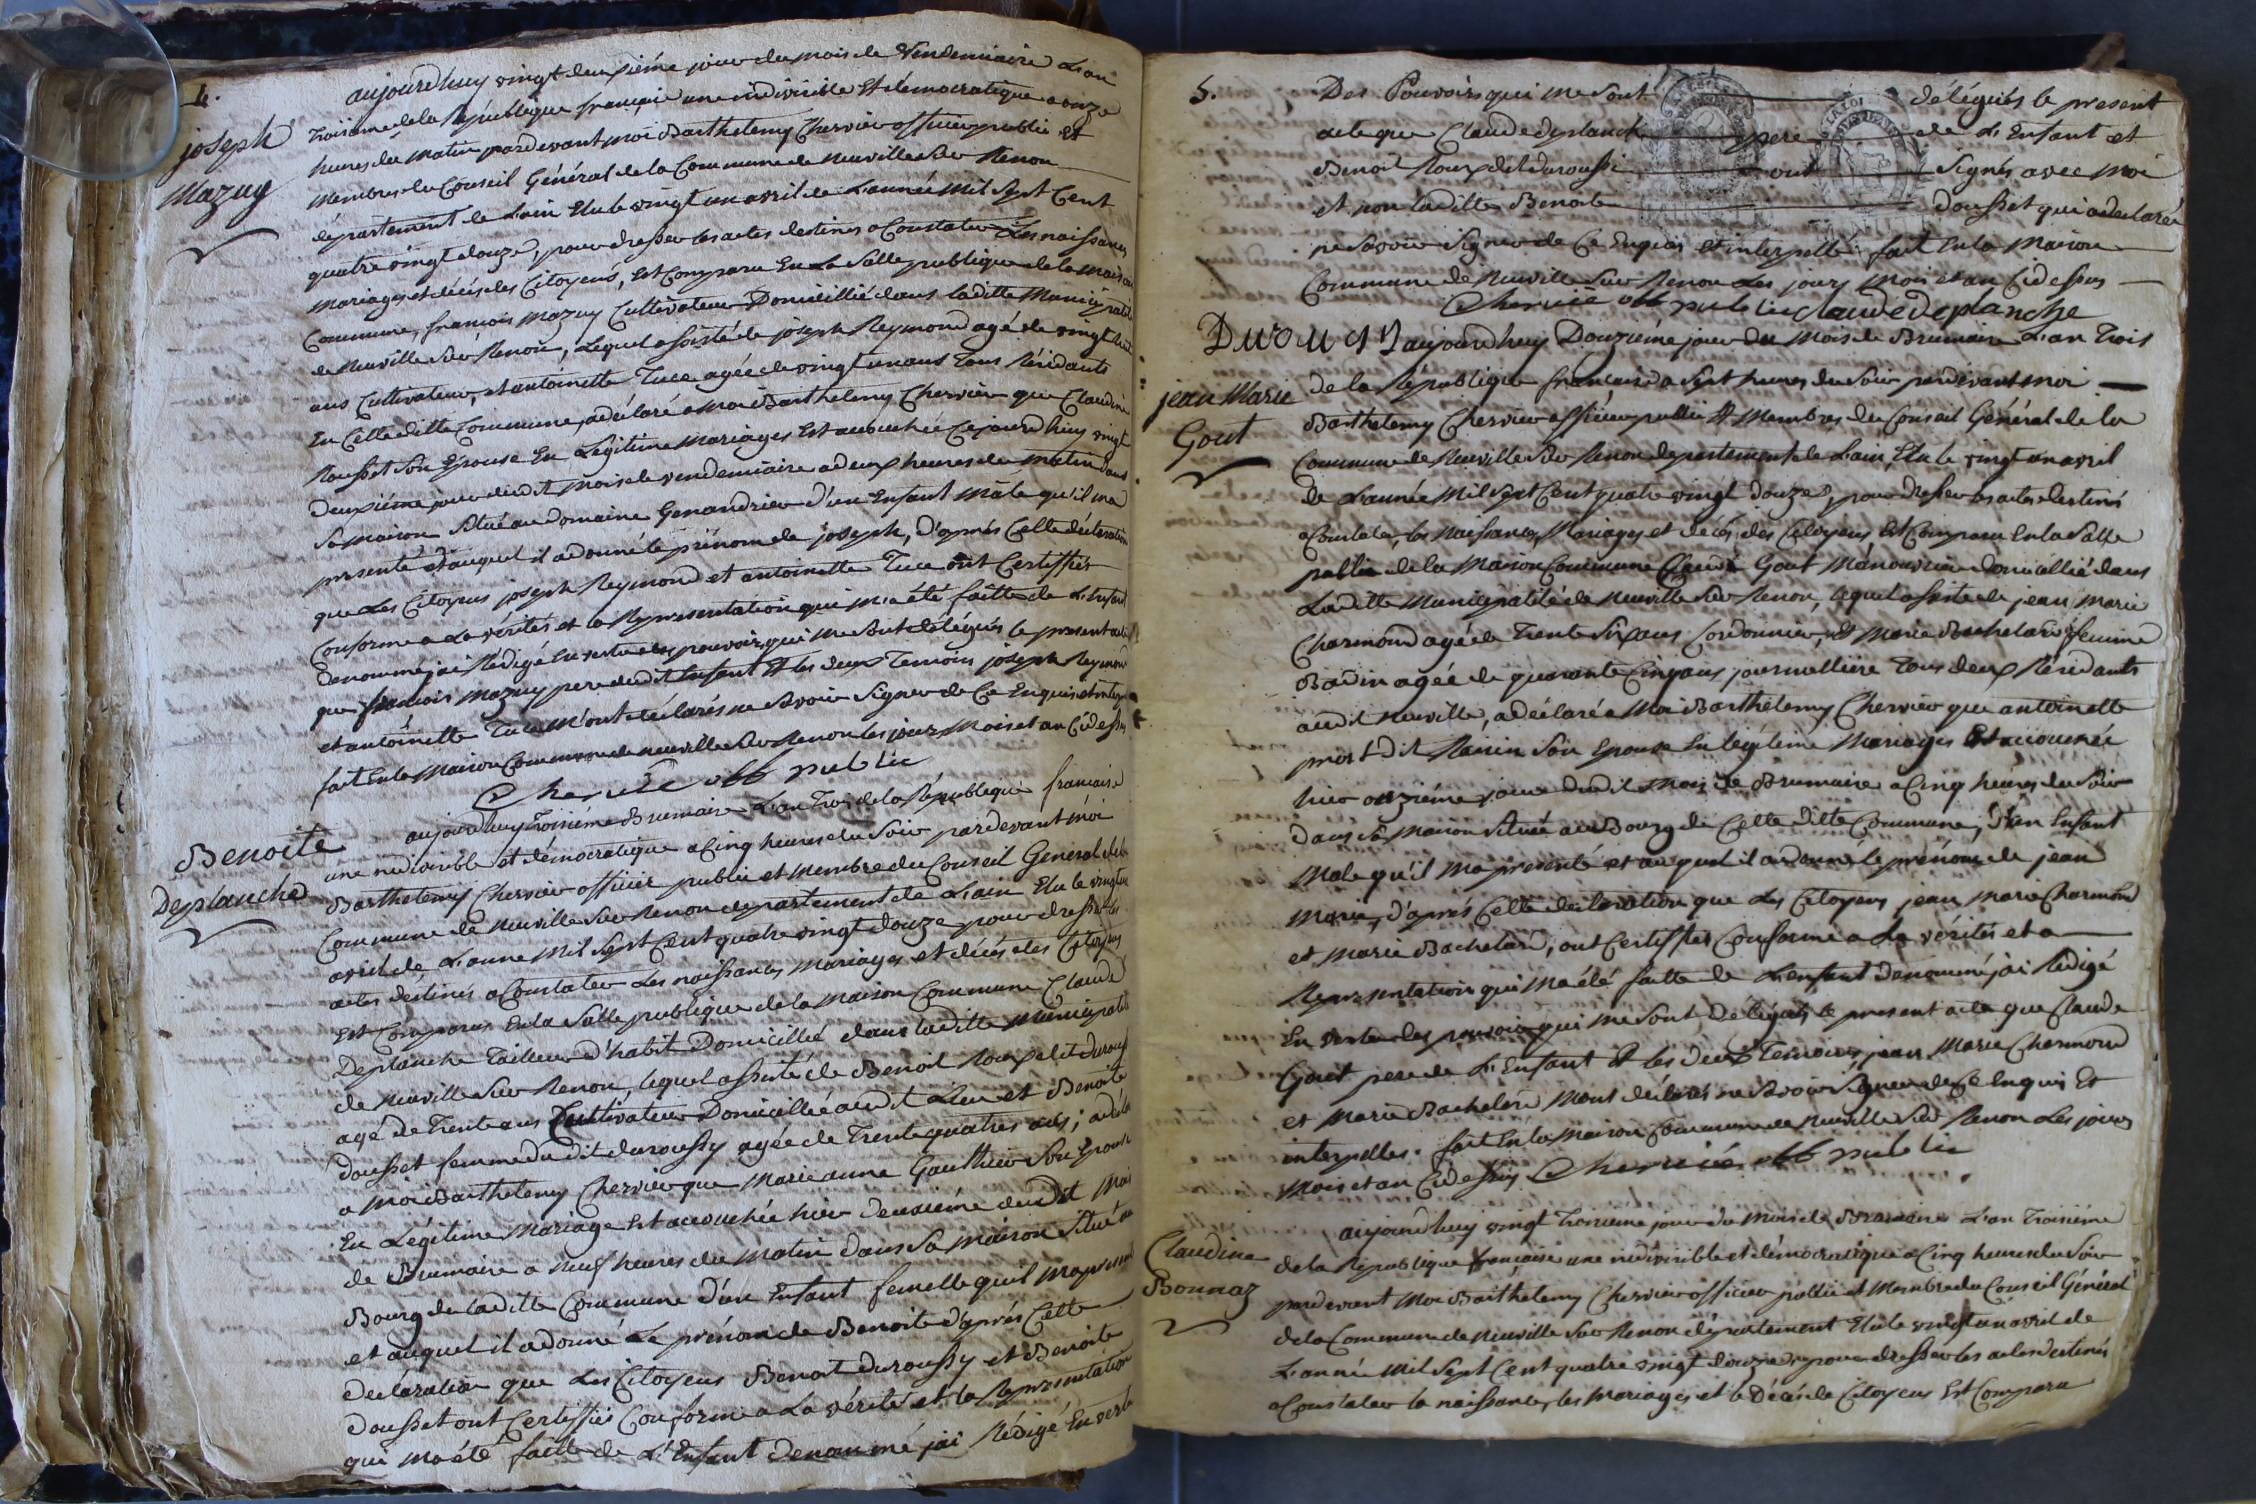 4.
joseph
Mazuy
aujourdhuy vingt deuxiéme jour du mois de Vendemiaire L'an
troisieme de la République francaise une indivisible Et démocratique a onze
heures du matin pardevant moi Barthelemy Chervier officier public et
Membres du Conseil Général de la Commune de Neuville Sur Renon
département de Lain Elu le vingt un avril de L'année Mil Sept Cent
quatre vingt douze, pour dresser les actes destinés a Constater Les naissances
Mariages et décés des Citoyens, Est Comparu En La Salle publique de la Maison
Commune, francois Mazuy Cultivateur Domicillié dans laditte Municipalité
de Neuville Sur Renon, Lequel assisté de joseph Reymond agé de vingt huit
ans Cultivateur, et antoinette Tuce agée de vingt un ans Tous Résidants
En Celle ditte Commune, a déclaré a Moi Barthelemy Chervier que Claudine
Rousset Son Epouse En Légitime Mariages Est accouchée Cejourdhuy vingt
Deuxiéme jour dudit Mois de vendemiaire a deux heures du matin dans
Sa Maison Située au Domaine Genandrier d'un Enfant Mâle qu'il ma
presenté et auquel il a donné le prénom de joseph, D'aprés Celle déclaration
que Les Citoyens joseph Reymond et antoinette Tuce ont Certiffiés
Conforme a La vérités et la Représentation qui m'a été faitte de L'Enfant
denommé jai Rédigé En vertu des pouvoirs qui me Sont délégués le present acte
que francois Mazuy pere dudit Enfant Et les deux Temoins joseph Reymond
et antoinette Tuce M'ont déclarés ne Savoir Signer de Ce Enquis et interpellés
fait En la Maison Commune de Neuville Sur Renon les jours Mois et an Cidessus
Chervié off public
Benoite
Deplanche
aujourdhuy Troisiéme Brumaire L'an Trois de la République francaise
une indivisible et démocratique a Cinq heures du Soir pardevant moi
Barthelemy Chervier officier public et Membre du Conseil General de la
Commune de Neuville Sur Renon departement de Lain Elu le vingt un
avril de L'anne Mil Sept Cent quatre vingt douze pour dresser les
actes destinés a Constater Les naissances Mariages et décés des Citoyens
Est Comparus En la Salle publique de la Maison Commune Claude
Deplanche Tailleur d'habit Domicillié dans laditte Municipalité
de Neuville Sur Renon, lequel assisté de Benoit Roux dit duroussy
agé de Trente ans Cultivateur Domicillié audit Lieu et Benoite
dousset femme dudit duroussy agée de Trente quatres ans; a déclaré
a Moi Barthelemy Chervier que Marie anne Gauthier Son Epouse
En Légitime Mariage Est accouchée hier Deuxiéme dudit Mois
de Brumaire a Neuf heures du Matin dans Sa maison Située au
Bourg de laditte Commune d'un Enfant femelle qu'il ma presenté
et auquel il a donné Le prénom de Benoite d'aprés Cette
declaration que Les Citoyens Benoit duroussy et Benoite
Dousset ont Certiffiés Conforme a La vérité et la Représentation
qui Ma été faitte de L'Enfant denommé jai Rédigé En vertu
5.
Des Pouvoirs qui me Sont délégués le present
acte que Claude deplanche pere de L'Enfant et
Benoit Roux dit duroussi ont Signés avec Moi
et non laditte Benoite Dousset qui a declarée
ne Savoir Signer de Ce Enquis et interpellé fait En la Maison
Commune de Neuville Sur Renon Les jours Mois et an Cidessus
Chervié off public claude deplanche
jean Marie
Gout
aujourdhuy Douziéme jour du Mois de Brumaire L'an Trois
de la République francaise a Sept heures du Soir pardevant moi
Barthelemy Chervier officier public Et Membres du Conseil Général de la
Commune de Neuville Sur Renon departement de Lain, Elu le vingt un avril
de L'année Mil Sept Cent quatre vingt Douze, pour dresser les actes destinés
a Constater, les Naissances, Mariages et decés, des Citoyens Est Comparu En la Salle
public de la Maison Commune Claude Gout Manouvrier domicillié dans
Laditte Municipalité de Neuville Sur Renon, lequel assisté de jean Marie
Charmond agé de Trente Six ans Cordonnier, Et Marie Bachelard femme
Badin agée de quarante Cinq ans journelliere Tous deux Résidants
audit Neuville, a déclaré a Moi Barthelemy Chervier que antoinette
prost Dit Son Epouse En legitime Mariages Est accouchée
hier onziéme jour dudit Mois de Brumaire a Cinq heures du Soir
Dans Sa Maison Située au Bourg de Celle ditte Commune, d'un Enfant
Male qu'il Ma presenté et au quel il a donné le prénom de jean
Marie, d'aprés Cette declaration que Les Citoyens jean Marie Charmond
et Marie Bachelard, ont Certiffiés Conforme a La vérités et a
Représentation qui Ma été faitte de L'enfant denommé jai Rédigé
En vertu des pouvoirs qui me Sont Délégués le present acte que Claude
Gout pere de L'Enfant Et les deux Temoins jean Marie Charmond
et Marie Bachelard Mont déclarés ne Savoir Signer de Ce Enquis Et
interpellés. fait En la Maison Commune de Neuville Sur Renon Les jours
Mois et an Cidessus Chervié off public
Claudine
Bonnaz
aujourdhuy vingt Troisieme jour du Mois de Brumaire L'an Troisiéme
de la Republique francaise une indivisible et démocratique a Cinq heures du Soir
pardevant Moi Barthelemy Chervier officier public et Membre du Conseil Général
de la Commune de Neuville Sur Renon departement Elu le vingt un avril de
L'année Mil Sept Cent quatre vingt douze pour dresser les actes destinés
a Constater la naissances, les Mariages et le Décés de Citoyens Est Comparu